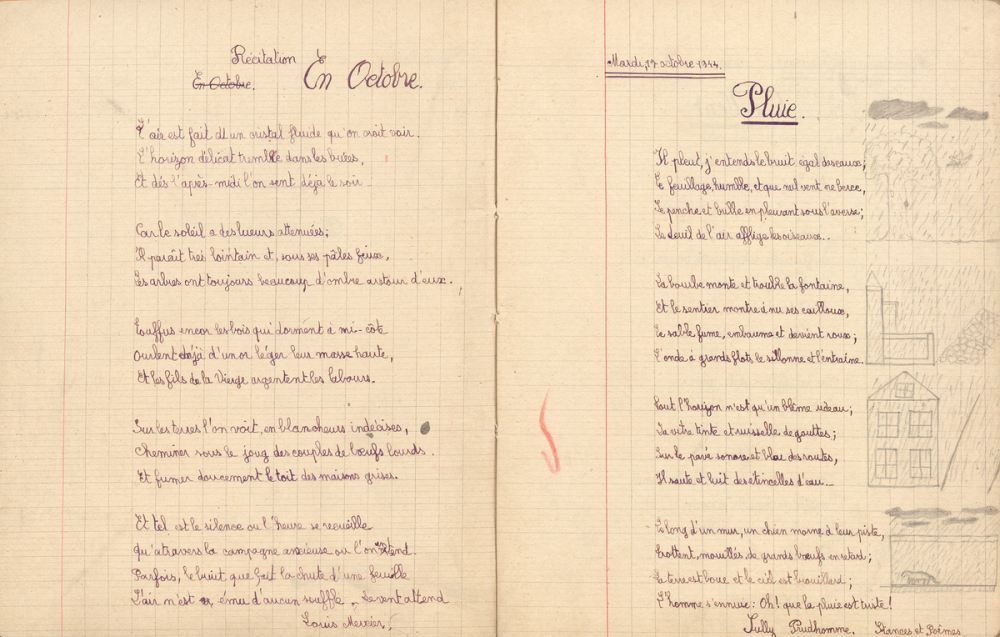 Récitation
En Octobre.
En Octobre.
L'air est fait d'un cristal fluide qu'on croit voir.
L'horizon délicat tremble dans les buées,
Et dès l'après-midi l'on sent déjà le soir
Car le soleil a des lueurs attenuées;
Il paraît très lointain et, sous ses pâles feux,
Les arbres ont toujours beaucoup d'ombre autour d'eux.
Touffus encor les bois qui dorment à mi-côte
Ourlent déjà d'un or léger leur masse haute,
Et les fils de la Vierge argentent les labours.
Sur les terres l'on voit, en blancheurs indécises,
Cheminer sous le joug des couples de bœufs lourds.
Et fumer doucement le toit des maisons grises.
Et tel est le silence ou l'heure se recueille
qu'a travers la campagne anxieuse ou l'on entend
Parfois, le bruit que fait la chute d'une feuille
L'air n'est ému d'aucun souffle. Le vent attend
Louis Mercier.
Mardi, 17 octobre 1944.
Pluie.
Il pleut, j'entends le bruit égal des eaux;
Le feuillage, humble, et que nul vent ne berce,
Se penche et brille en pleurant sous l'averse;
Le deuil de l'air afflige les oiseaux...
La bourbe monte et trouble la fontaine,
Et le sentier montre à nu ses cailloux,
Le sable fume, embaume et devient roux;
L'onde à grands flots le sillonne et l'entraîne.
Tout l'horizon n'est qu'un blême rideau;
La vitre tinte et ruisselle de gouttes;
Sur le pavé sonore et bleu des routes,
Il saute et luit des étincelles d'eau...
Le long d'un mur, un chien morne à leur piste,
Trottent, mouillés, de grands bœufs en retard;
La terre est boue et le ciel est brouillard;
L'homme s'ennuie: Oh! que la pluie est triste!
Sully Prudhomme. Stances et Poèmes.